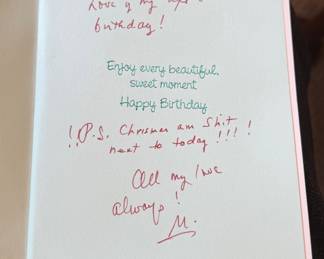 Love of my life
birthday!
Enjoy every beautiful,
sweet moment
Happy Birthday
!! P.S. Chrismes am shit
next to today !!! !
All my love
always!
M.